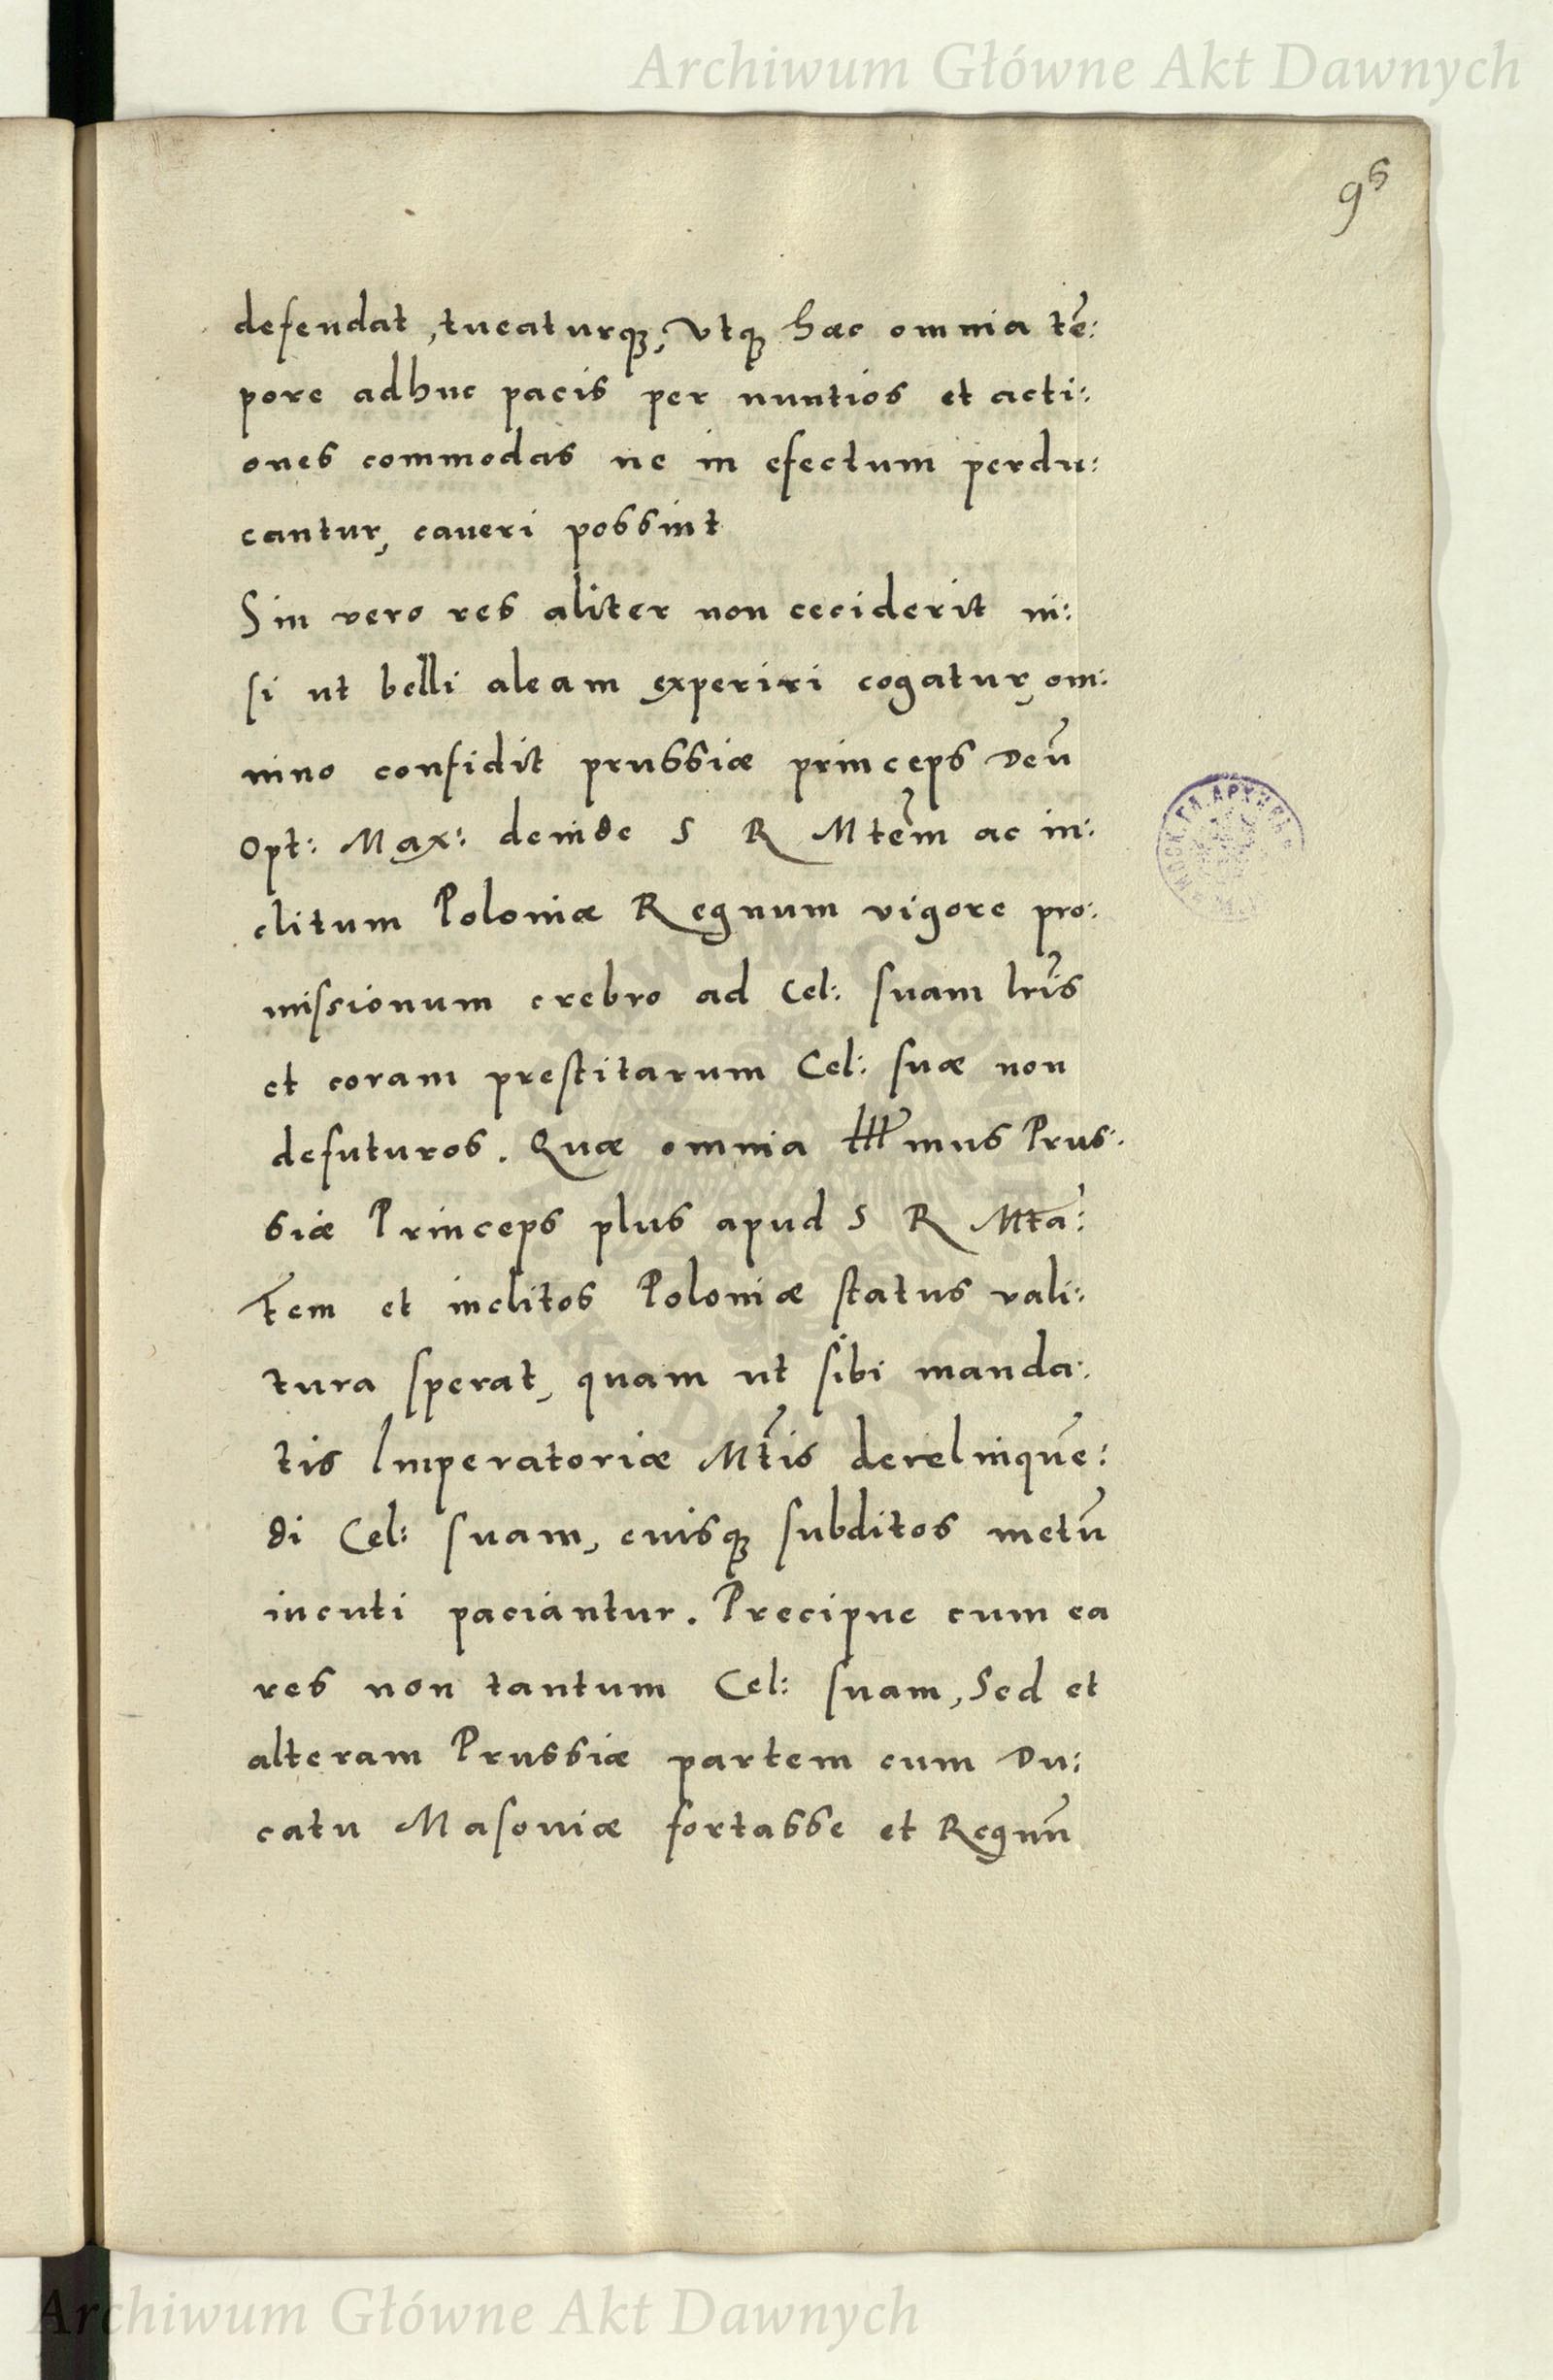 Archiwum Główne Akt Dawnych
95
defendat, tueaturq́ꝫ, Vtqꝫ haec omnia tē:
pore adhuc pacis per nuntios et acti:
ones commodas ne in efectum perdu:
cantur, caueri possint
Sin vero res aliter non ceciderit ni:
si ut belli aleam experiri cogatur, om:
nino confidit prussiæ princeps Deū
Opt: Max: deinde S R Mtem̄ ac in:
clitum Poloniæ Regnum vigore pro:
missionum crebro ad Cel: suam lr̄is
et coram prestitarum Cel: suæ non
defuturos. Quæ omnia Illmus Prus:
siæ Princeps plus apud S R Mta:
tem et inclitos Poloniæ status vali:
tura sperat, quam ut sibi manda:
tis Imperatoriæ Mt̄is derelinquē:
di Cel: suam, euisqꝫ subditos metū
incuti paciantur. Precipue cum ea
res non tantum Cel: suam, Sed et
alteram Prussiæ partem cum Du:
catu Masouiæ fortasse et Regnū
Archiwum Główne Akt Dawnych